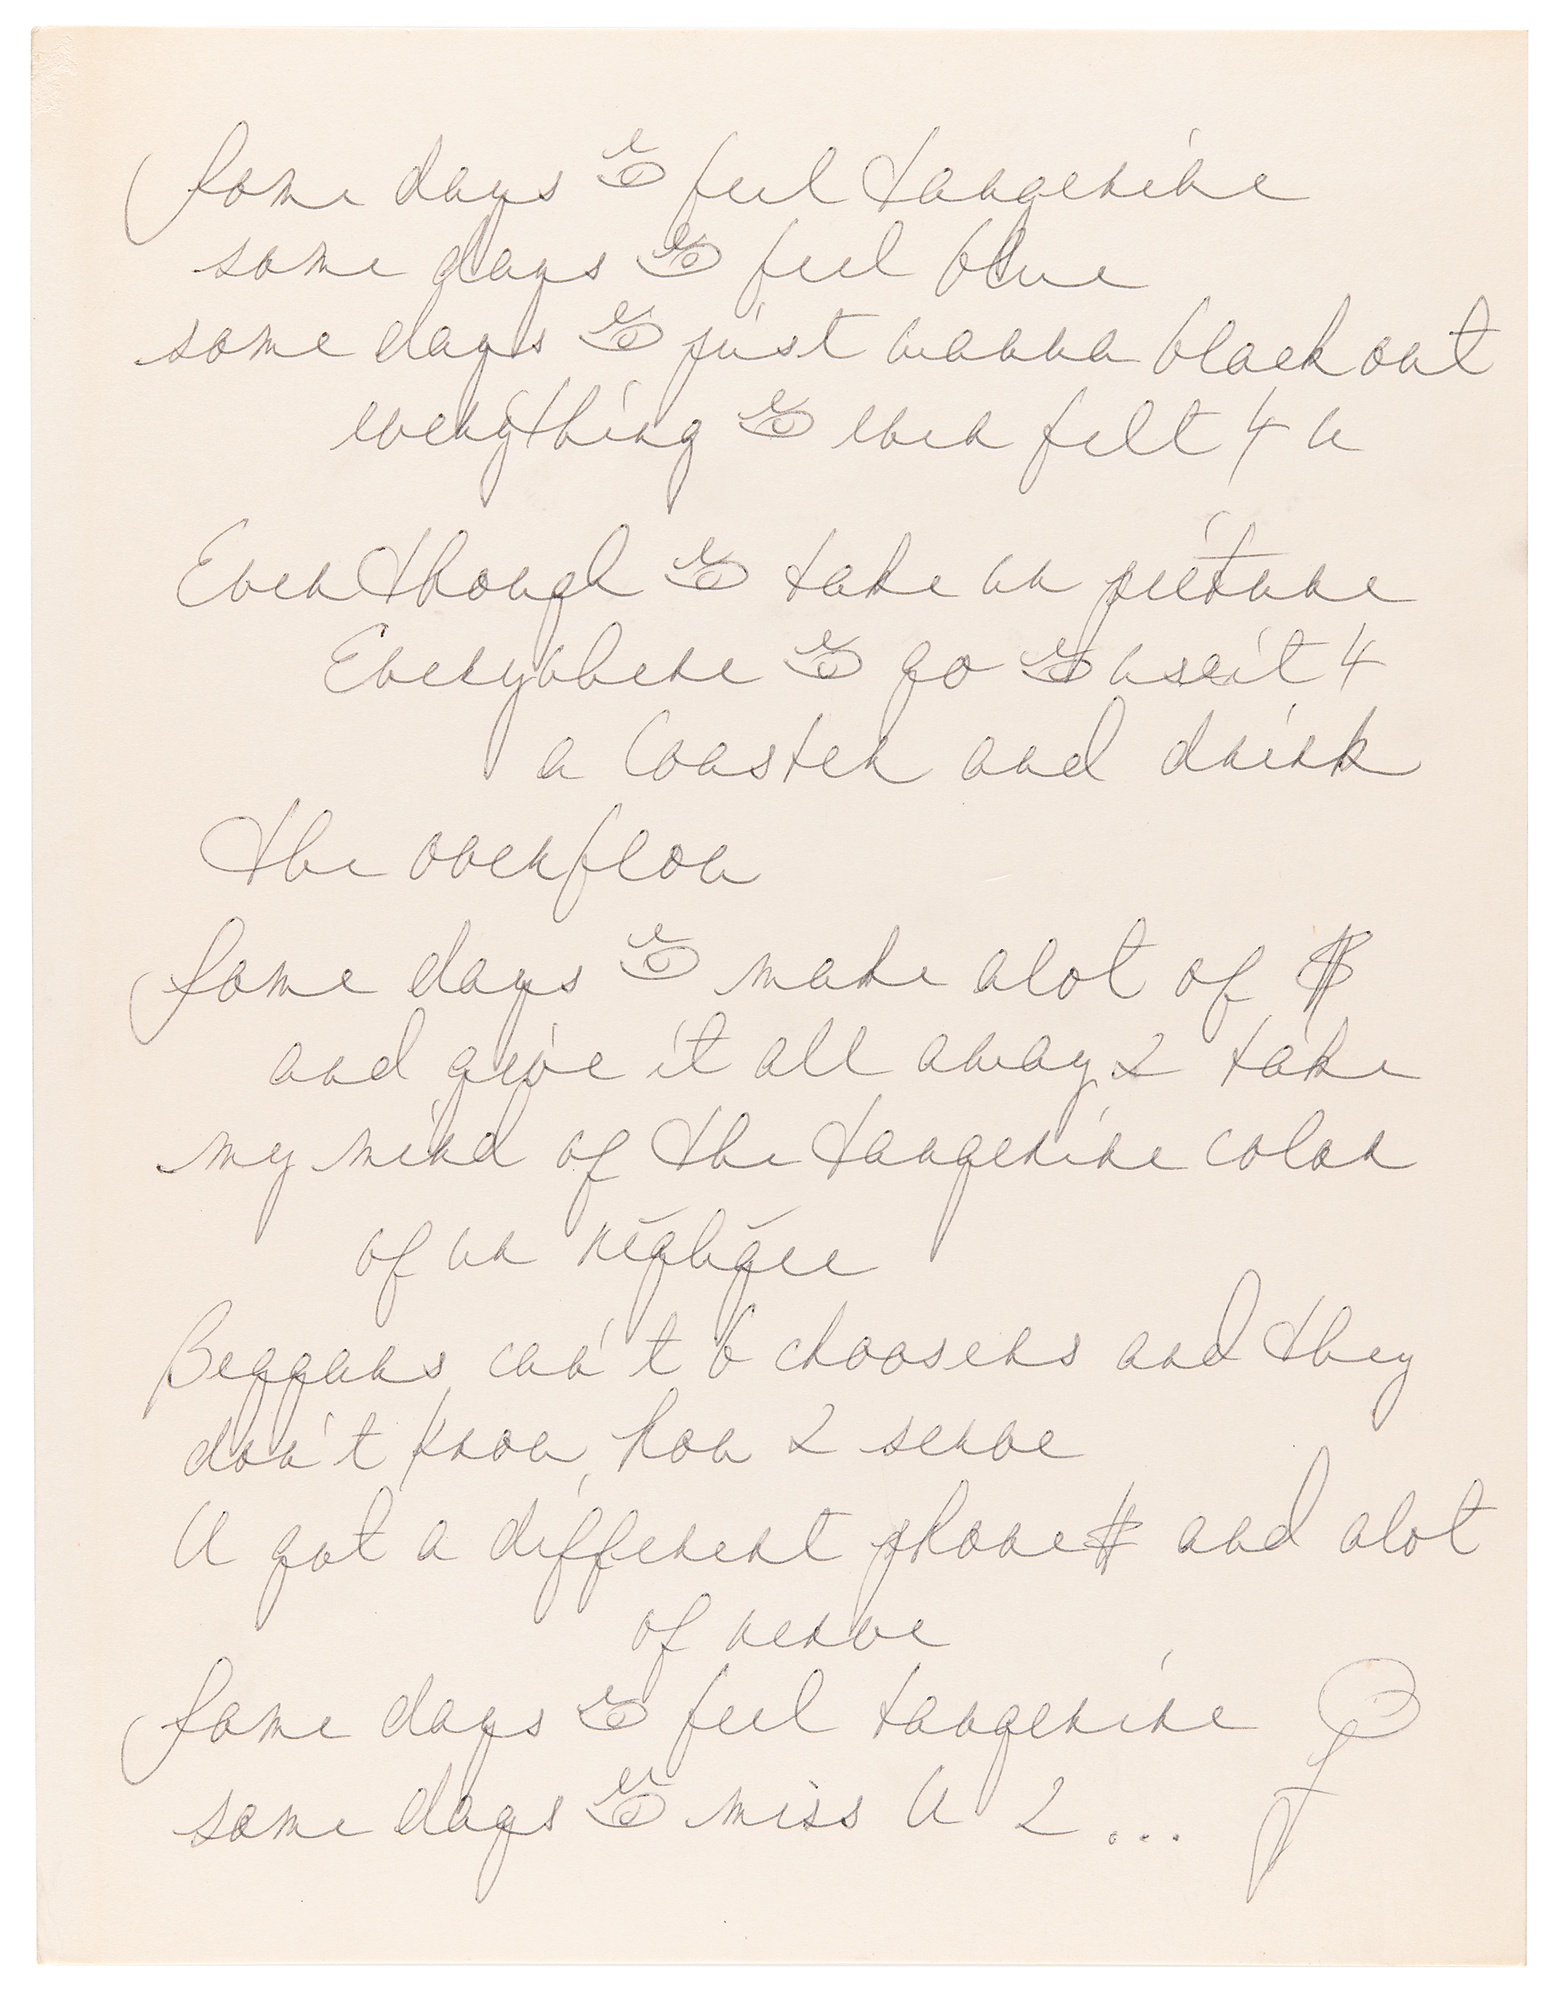 Some days 👁 feel tangerine
some days 👁 feel blue
some days 👁 just wanna black out
everything 👁 ever felt 4 u
Even though 👁 take ur picture
Everywhere 👁 go 👁 use it 4
a coaster and drink
the overflow
Some days 👁 make alot of $
and give it all away 2 take
my mind of the tangerine color
of ur négligée
Beggars can't b choosers and they
don't know how 2 serve
U got a different phone # and alot
of nerve
Some days 👁 feel tangerine
some days 👁 miss U 2...